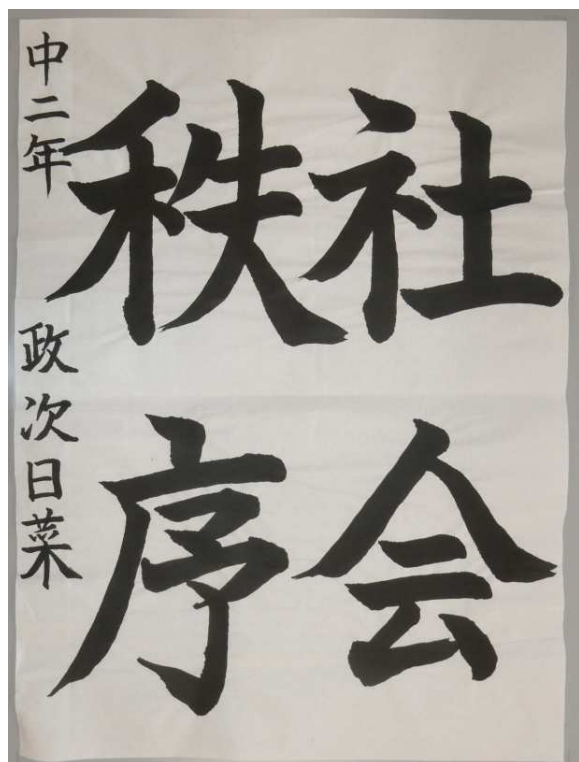 社会
秩序
中二年 政次日菜